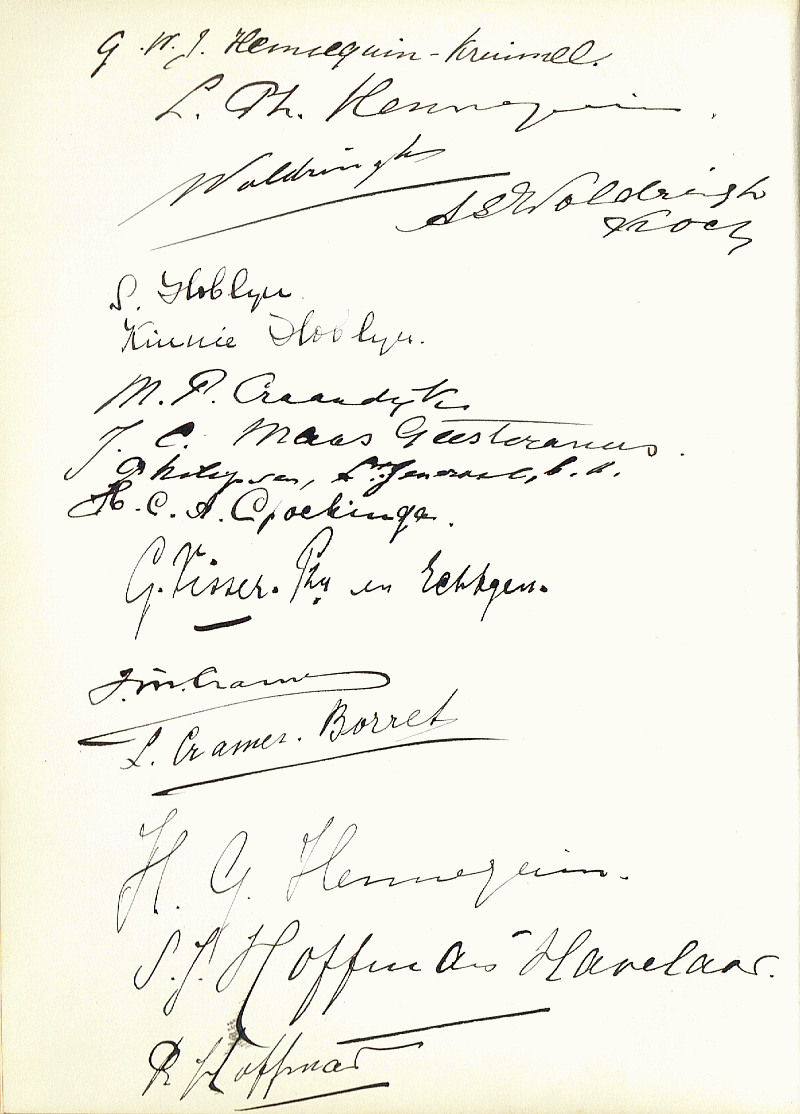 G. W. J. Hennequin-Kreimmel.
L. Ph. Hennequin.
Woldringh
A S Woldringh
Koch
S. Hoblyn
Kinnie Hoblyn.
M. P. Craandyk
J. C. Maas Geesteranus.
Lt. Generaal, b. d.
H. C. A.
G. Visser. Phz en Echtgen.
J. M. Cramer
L. Cramer. Borret
H. G. Hennequin.
S. J. Hoffman Havelaar.
R Hoffman